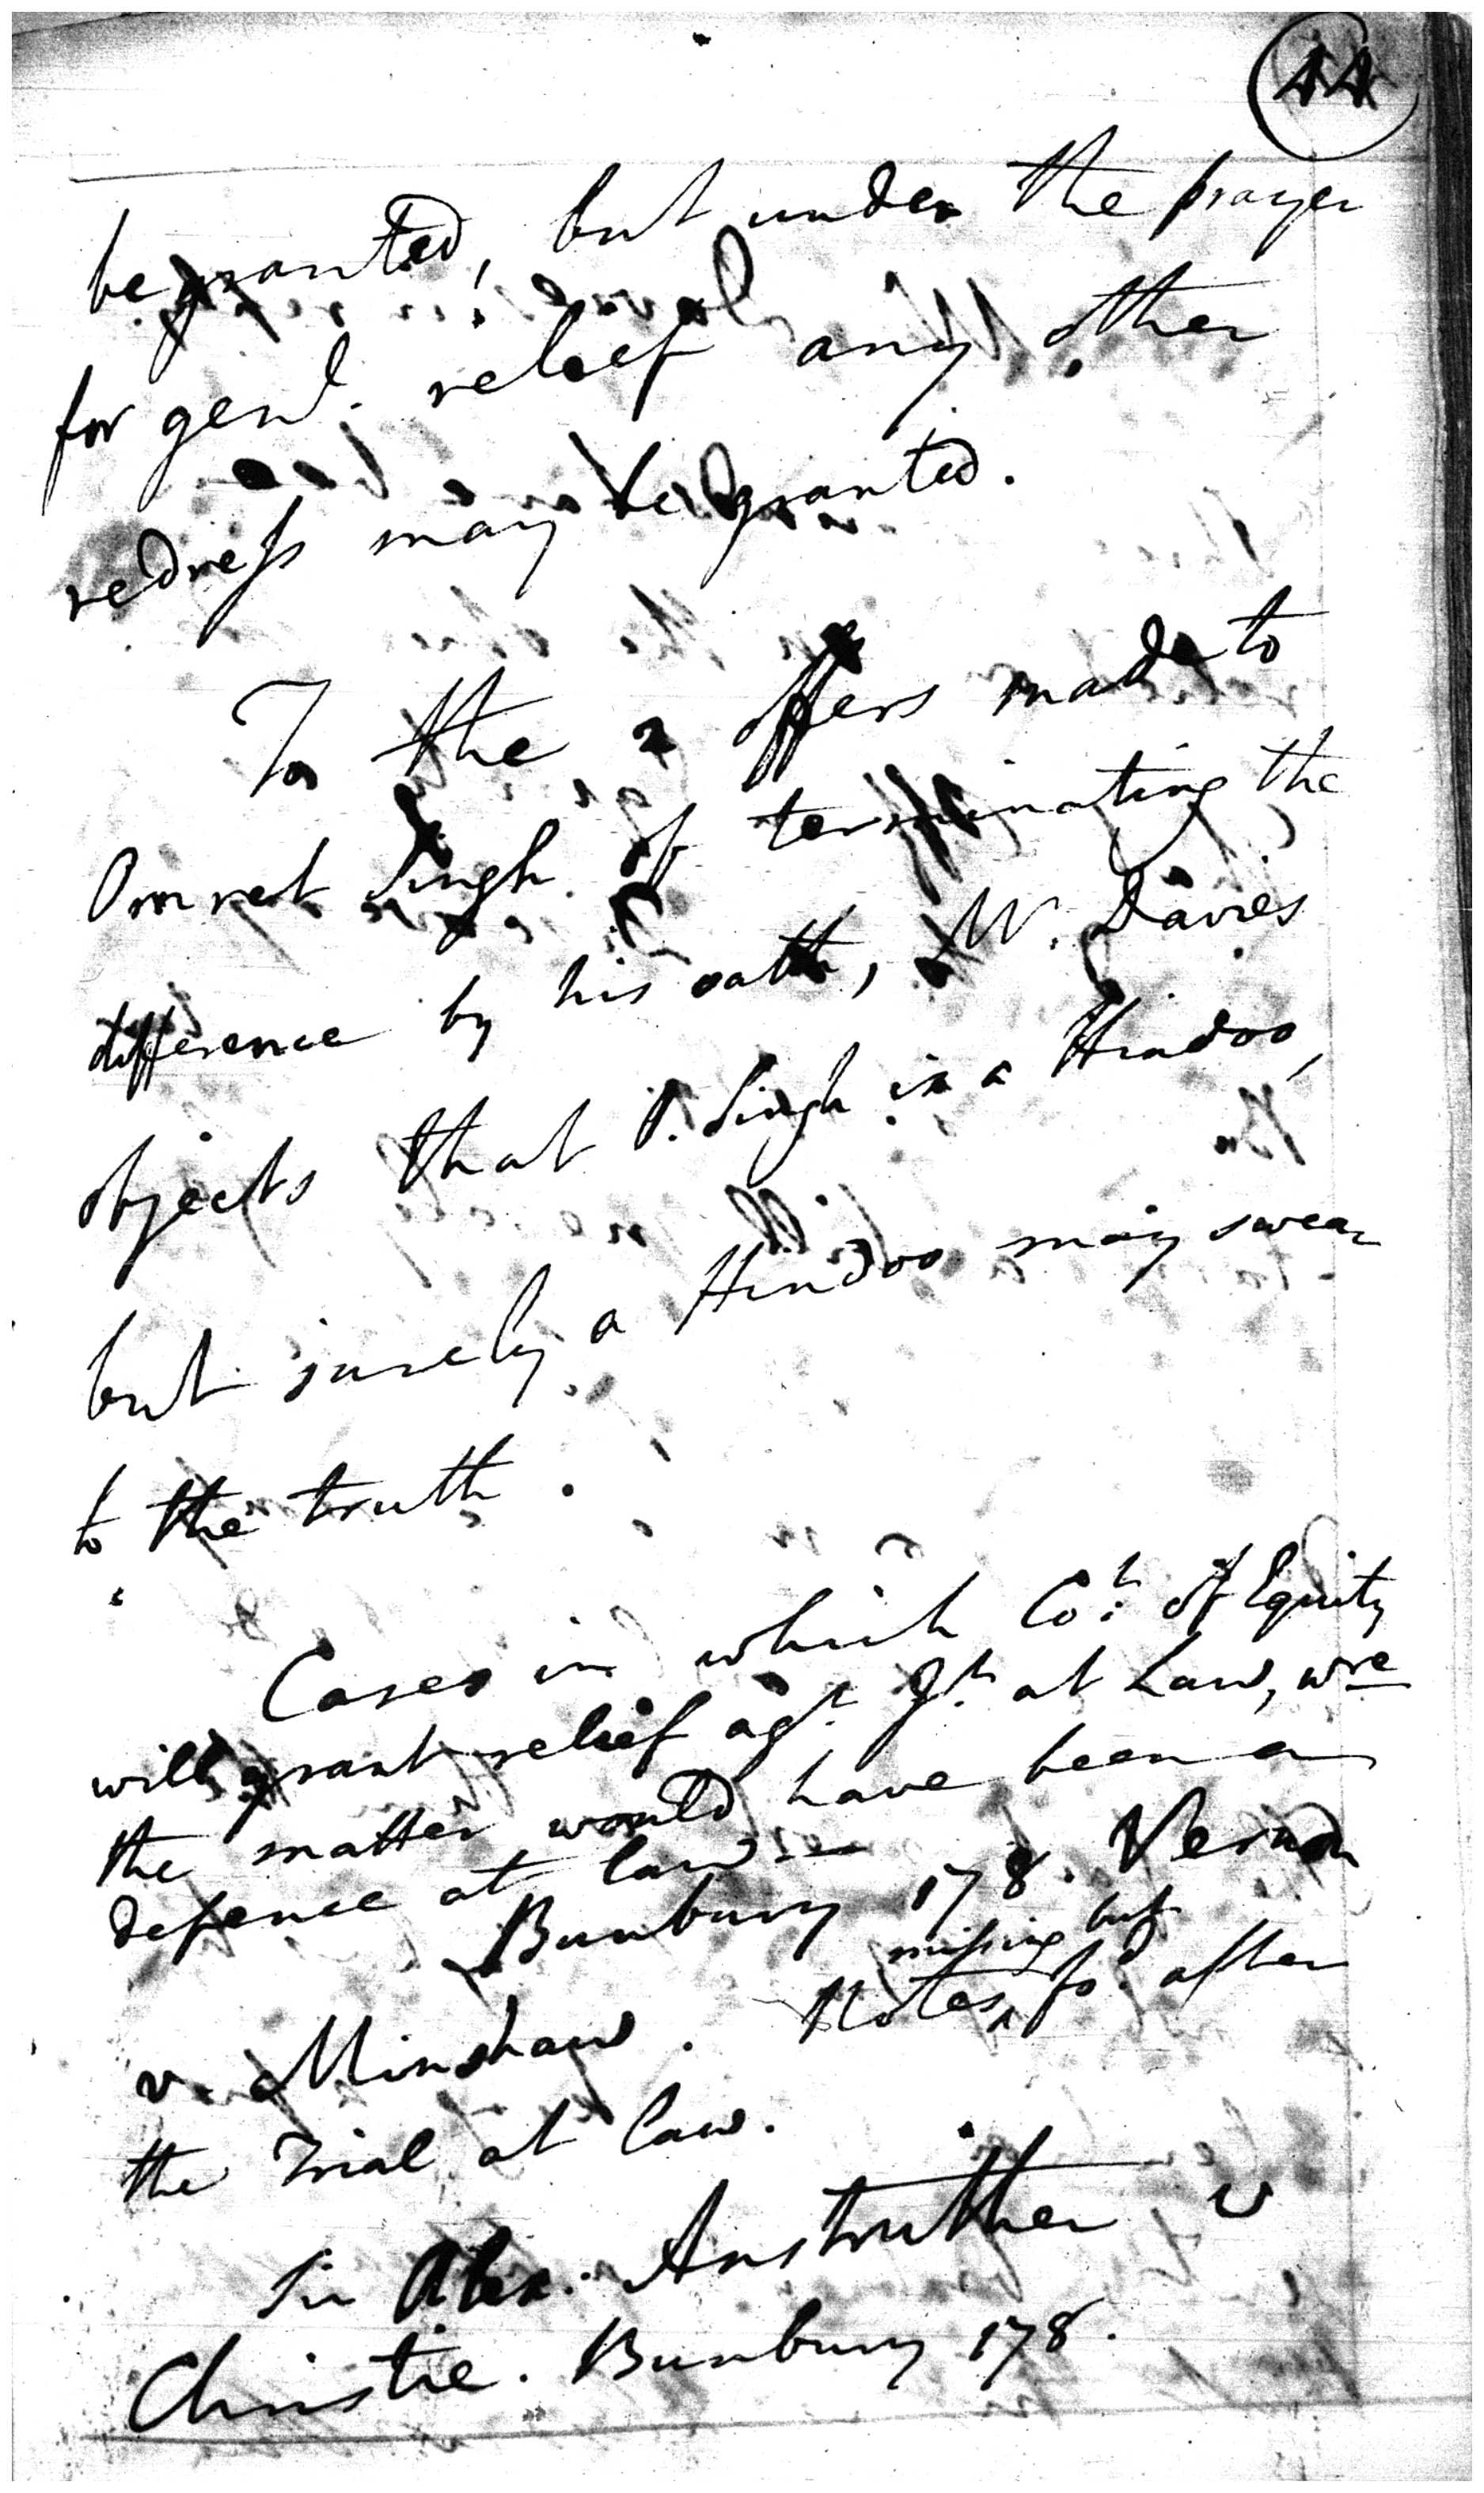 44
be granted, but under the prayer
for genl. relief any other
redress may be granted.
To the 2 offers made to
Omret Singh of terminating the
difference by his oath, Mr. Davies
objects that O. Singh is a Hindoo,
but surely a Hindoo may swear
to the truth.
Cases in which Cot. of Equity
will grant relief agt. Jt. at Law, wre
the matter would have been a
defence at law—
Bunbury 178. Vernon
v. Minshaw. Notes missing but fd. after
the Trial at law.
Sir Alex. Anstruther v
Christie. Bunbury 178.